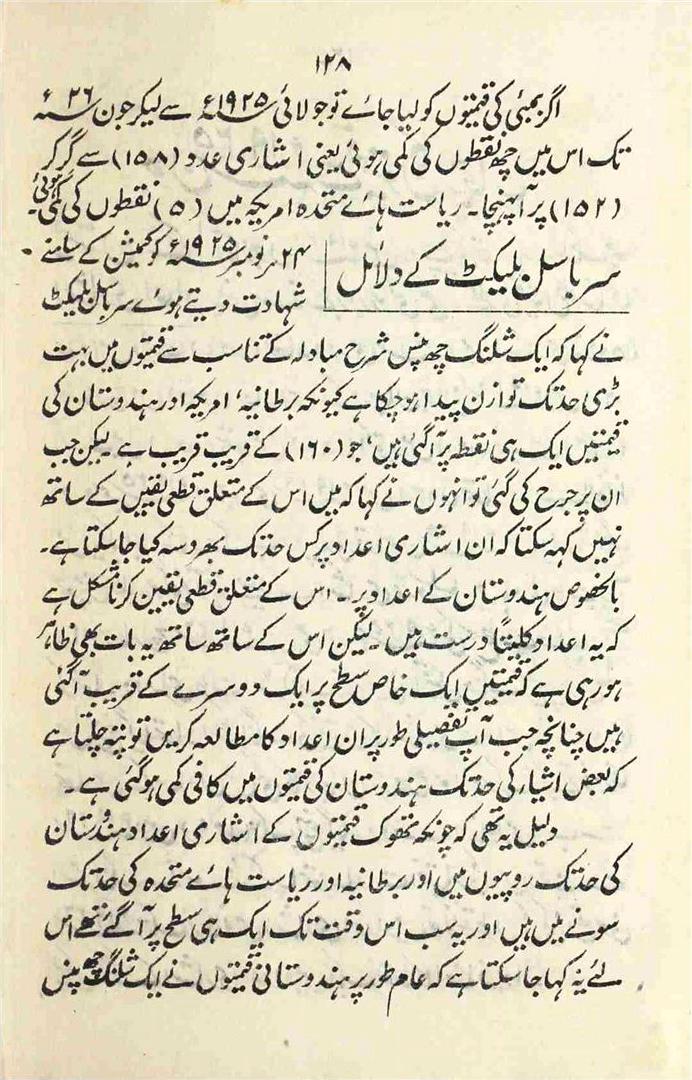 ۱۲۸
اگر بمبئی کی قیمتوں کو لیا جائے تو جولائی ۱۹۲۵ء سے لیکر جون ۲۶ء
تک اس میں چھ نقطوں کی کمی ہوئی یعنی اشاری عدد (۱۵۸) سے گر کر
(۱۵۲) پر آپہنچا۔ ریاست ہائے متحدہ امریکہ میں (۵) نقطوں کی کمی ہوئی۔
سر باسل بلیکٹ کے دلائل
۲۴ نومبر ۱۹۲۵ء کو کمیشن کے سامنے
شہادت دیتے ہوئے سر باسل بلیکٹ
نے کہا کہ ایک شلنگ چھ پنس شرح مبادلہ کے تناسب سے قیمتوں میں بہت
بڑی حد تک توازن پیدا ہو چکا ہے کیونکہ برطانیہ، امریکہ اور ہندوستان کی
قیمتیں ایک ہی نقطہ پر آگئی ہیں، جو (۱۶۰) کے قریب قریب ہے۔ لیکن جب
ان پر جرح کی گئی تو انہوں نے کہا کہ میں اس کے متعلق قطعی یقین کے ساتھ
نہیں کہہ سکتا کہ ان اشاری اعداد پر کس حد تک بھروسہ کیا جاسکتا ہے۔
بالخصوص ہندوستان کے اعداد پر۔ اس کے متعلق قطعی یقین کرنا مشکل ہے
کہ یہ اعداد کلیتاً درست ہیں۔ لیکن اس کے ساتھ ساتھ یہ بات بھی ظاہر
ہو رہی ہے کہ قیمتیں ایک خاص سطح پر ایک دوسرے کے قریب آگئی
ہیں چنانچہ جب آپ تفصیلی طور پر ان اعداد کا مطالعہ کریں تو پتہ چلتا ہے
کہ بعض اشیاء کی حد تک ہندوستان کی قیمتوں میں کافی کمی ہوگئی ہے۔
دلیل یہ تھی کہ چونکہ تھوک قیمتوں کے اشاری اعداد ہندوستان
کی حد تک روپیوں میں اور برطانیہ اور ریاست ہائے متحدہ کی حد تک
سونے میں ہیں اور یہ سب اس وقت تک ایک ہی سطح پر آگئے تھے اس
لئے یہ کہا جاسکتا ہے کہ عام طور پر ہندوستانی قیمتوں نے ایک شلنگ چھ پنس